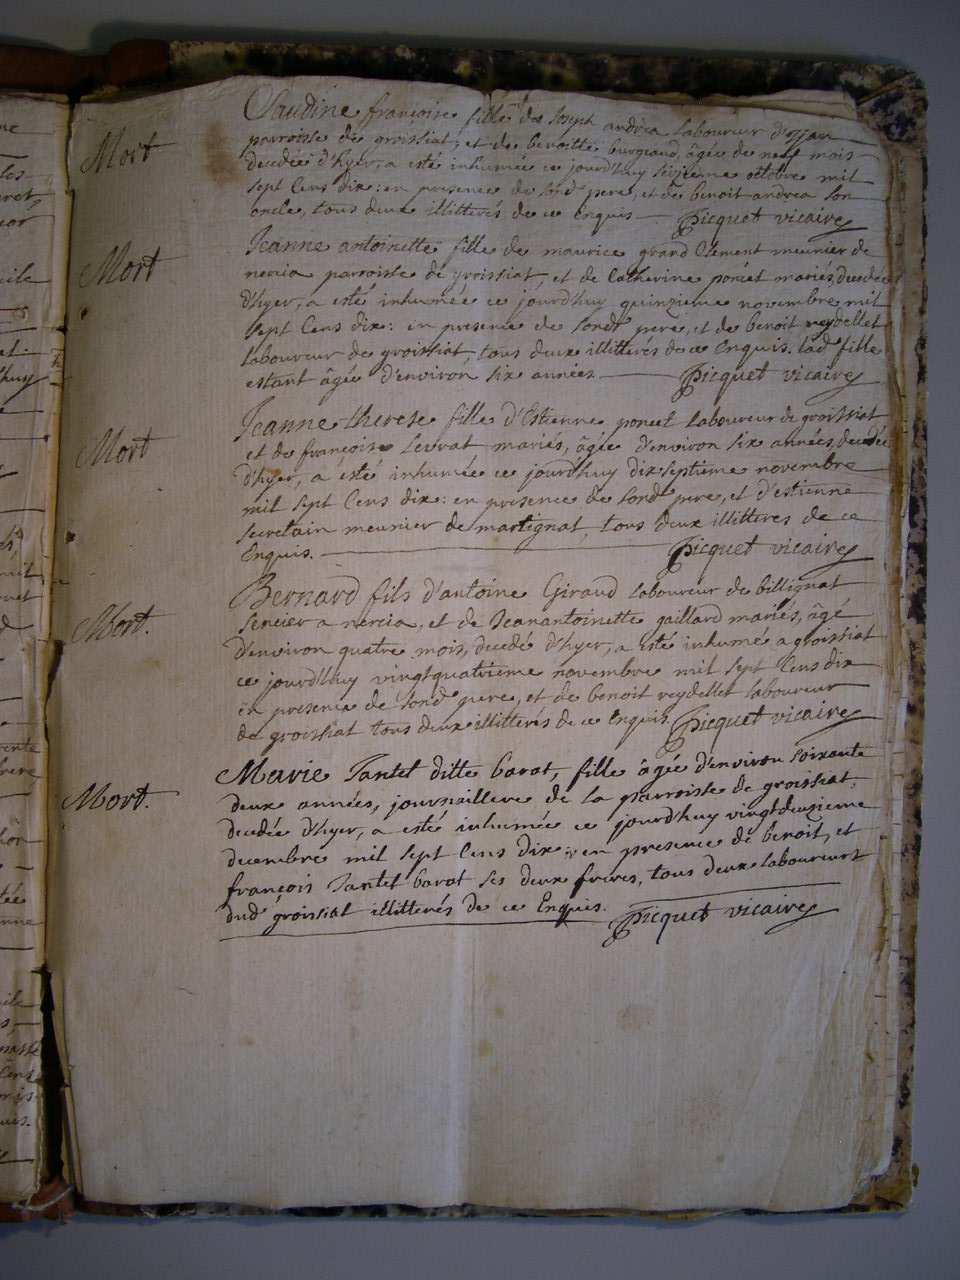 Mort
Claudine françoise fille de Joseph andrea laboureur d'ossian
parroisse de groissiat, et de benoitte burgeaud, âgée de neuf mois
decedée d'hyer, a esté inhumée ce jourd'huy seizieme octobre mil
sept Cens dix: en presence de sond pere, et de benoit andrea son
oncle, tous deux illitterés de ce Enquis Picquet vicaire
Mort
Jeanne antoinette fille de maurice grand Clement meunier de
nercia parroisse de groissiat, et de Catherine poncet mariés, decedée
d'hyer, a esté inhumée ce jourd'huy quinzieme novembre mil
sept Cens dix: en presence de sondt pere, et de benoit reydellet
laboureur de groissiat, tous deux illitterés de ce Enquis. lad fille
estant âgée d'environ six années. Picquet vicaire
Mort
Jeanne therese fille d'Estienne poncet laboureur de groissiat
et de françoise levrat mariés, âgée d'environ six années, decedée
d'hyer, a ésté inhumée ce jourd'huy dix septieme novembre
mil sept Cens dix: en presence de sond pere, et d'estienne
secretain meunier de martignat, tous deux illitteres de ce
Enquis. Picquet vicaire
Mort.
Bernard fils d'antoine Giraud laboureur de billignat
fencier a nercia, et de Jeanantoinette gaillard mariés, âgé
d'environ quatre mois, decedé d'hyer, a esté inhumé a groissiat
ce jourd'huy vingtquatrieme novembre mil sept Cens dix
en presence de sond pere, et de benoit reydellet laboureur
de groissiat tous deux illitterés de ce Enquis. Picquet vicaire
Mort.
Marie Tantet ditte barat, fille âgée d'environ soixante
deux années, journailliere de la parroisse de groissiat,
decedée d'hyer, a esté inhumée ce jourd'huy vingtdeuzieme
decembre mil sept Cens dix: en presence de benoit, et
françois Tantet barat ses deux freres, tous deux laboureurs
dud groissiat illitterés de ce Enquis. Picquet vicaire